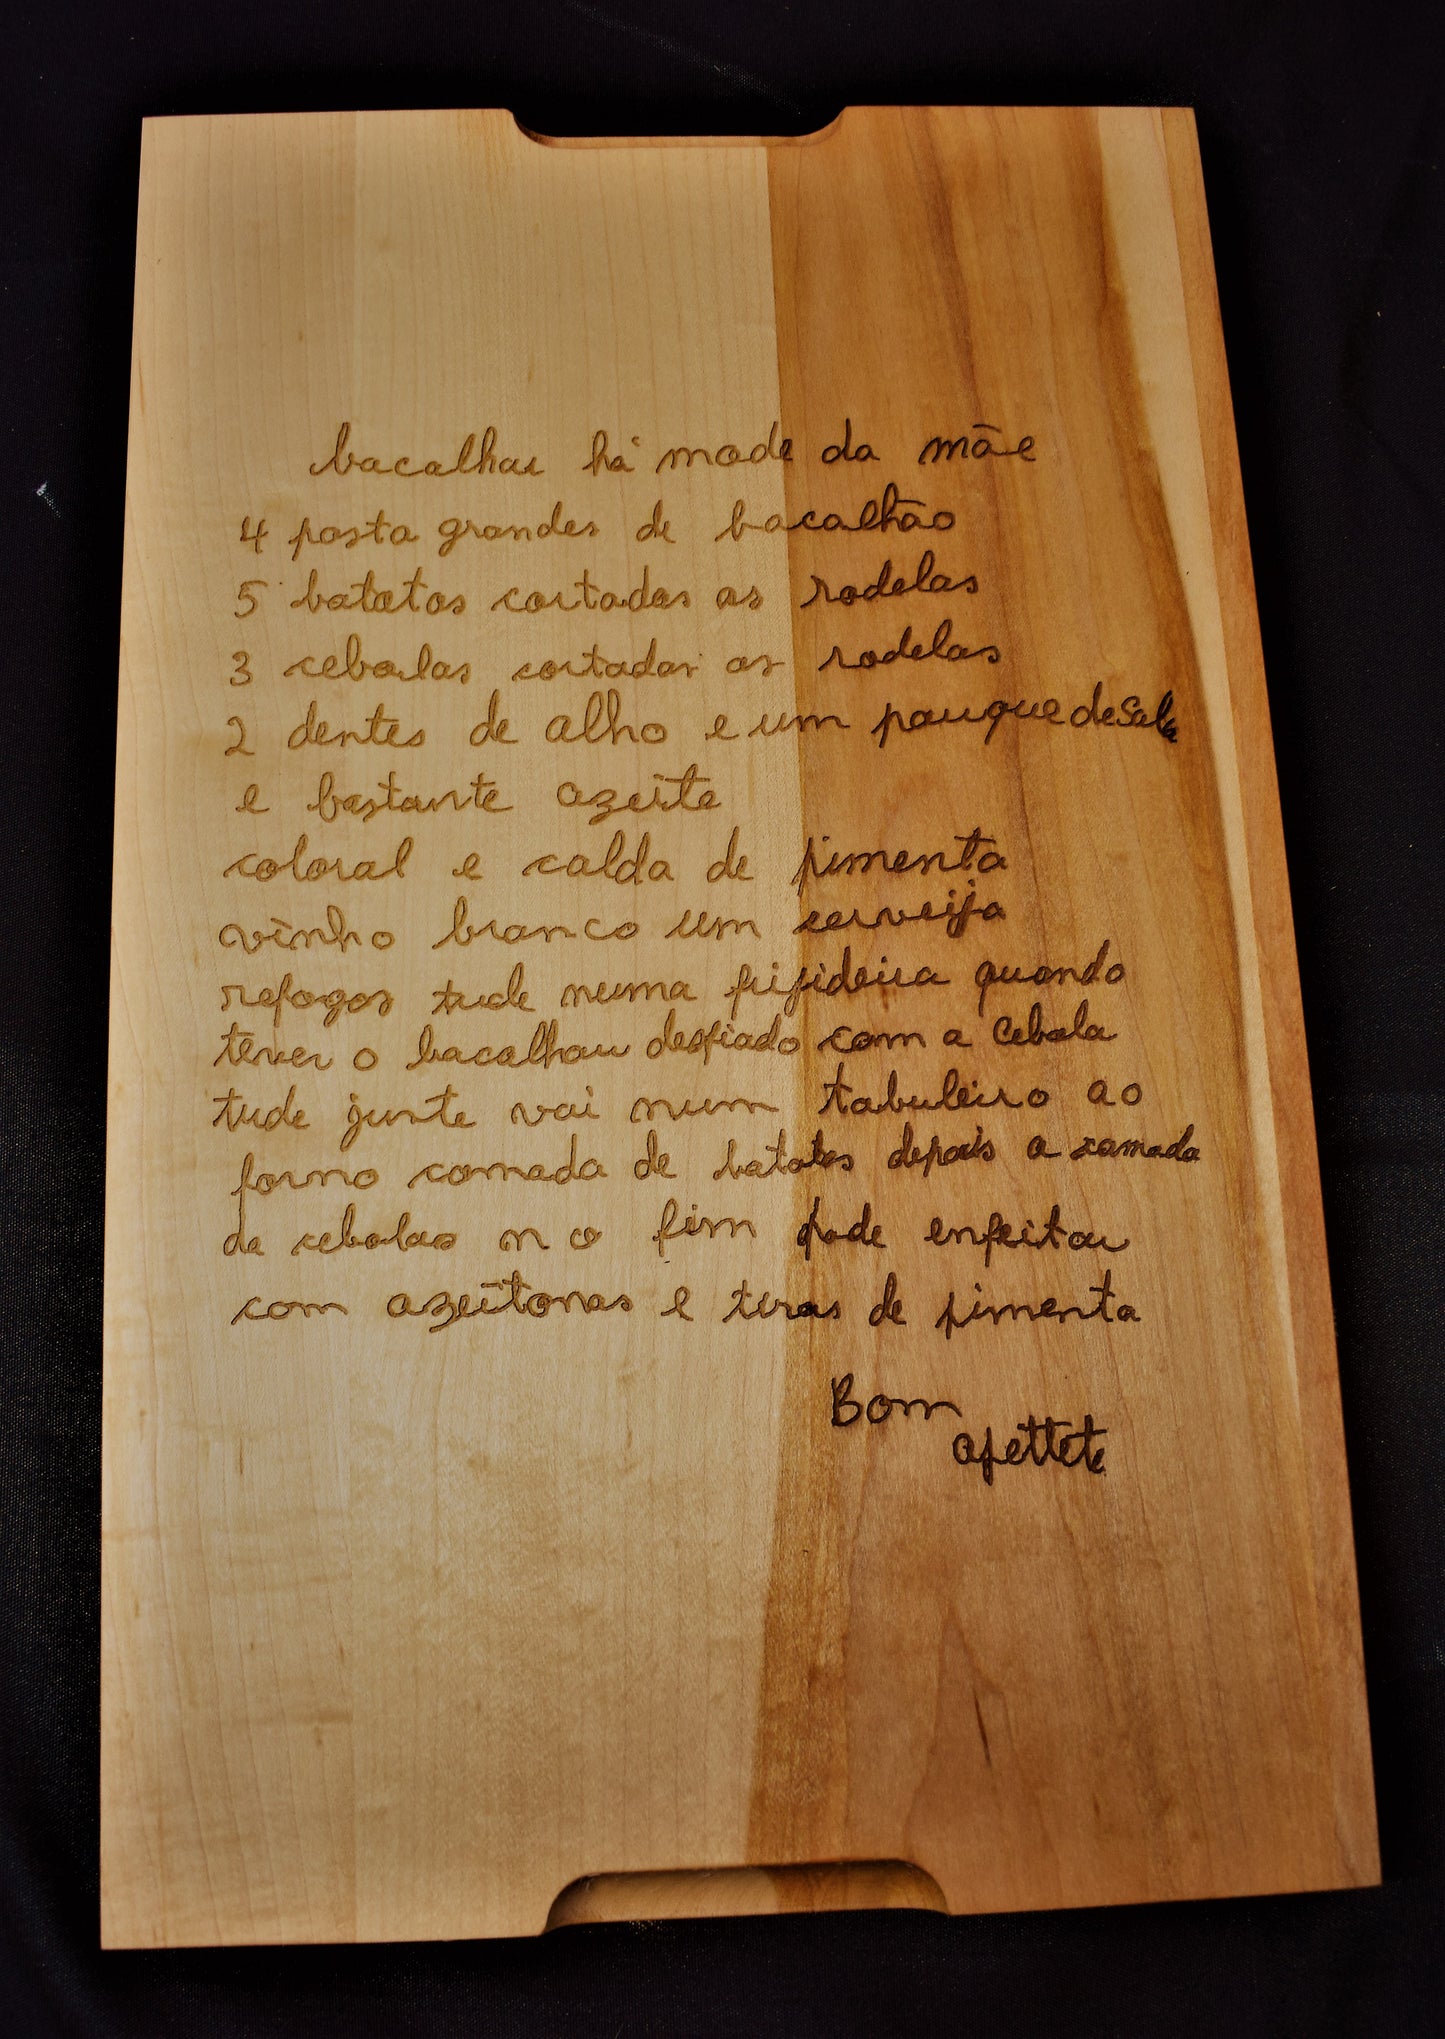 bacalhau há mode da mãe
4 posta grandes de bacalhão
5 batatas cortadas as rodelas
3 cebolas cortadas as rodelas
2 dentes de alho e um pouque de Salsa
e bastante azeite
coloral e calda de pimenta
vinho branco um cerveija
refogas tude numa frijideira quando
tever o bacalhau desfiado com a cebola
tude junte vai num tabuleiro ao
forno camada de batatas depois a camada
da cebolas no fim pode enfeitar
com azeitonas e tiras de pimenta
Bom
apettete